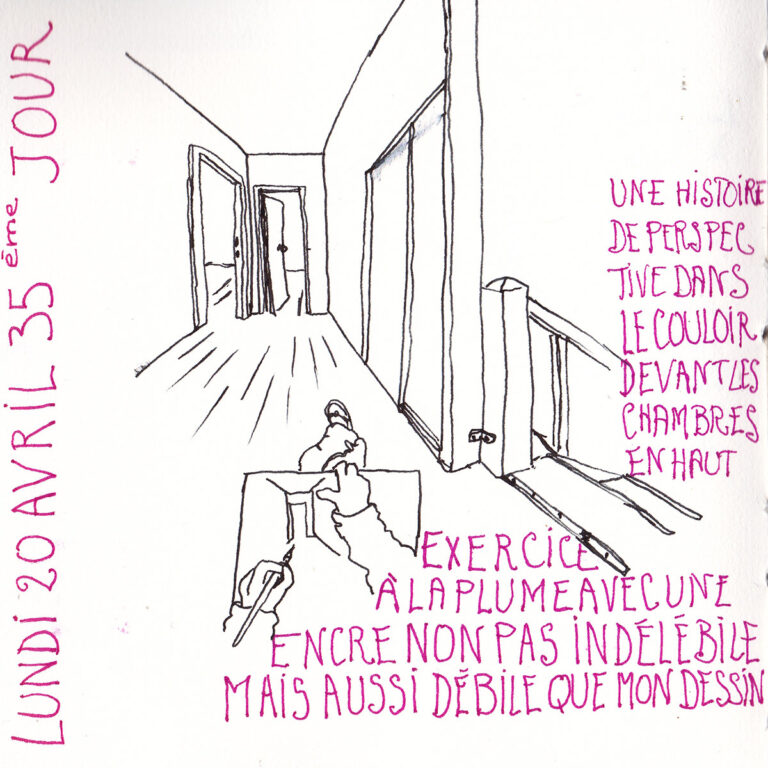 LUNDI 20 AVRIL 35ème JOUR
UNE HISTOIRE
DE PERSPEC
TIVE DANS
LE COULOIR
DEVANT LES
CHAMBRES
EN HAUT
EXERCICE
À LA PLUME AVEC UNE
ENCRE NON PAS INDÉLÉBILE
MAIS AUSSI DÉBILE QUE MON DESSIN